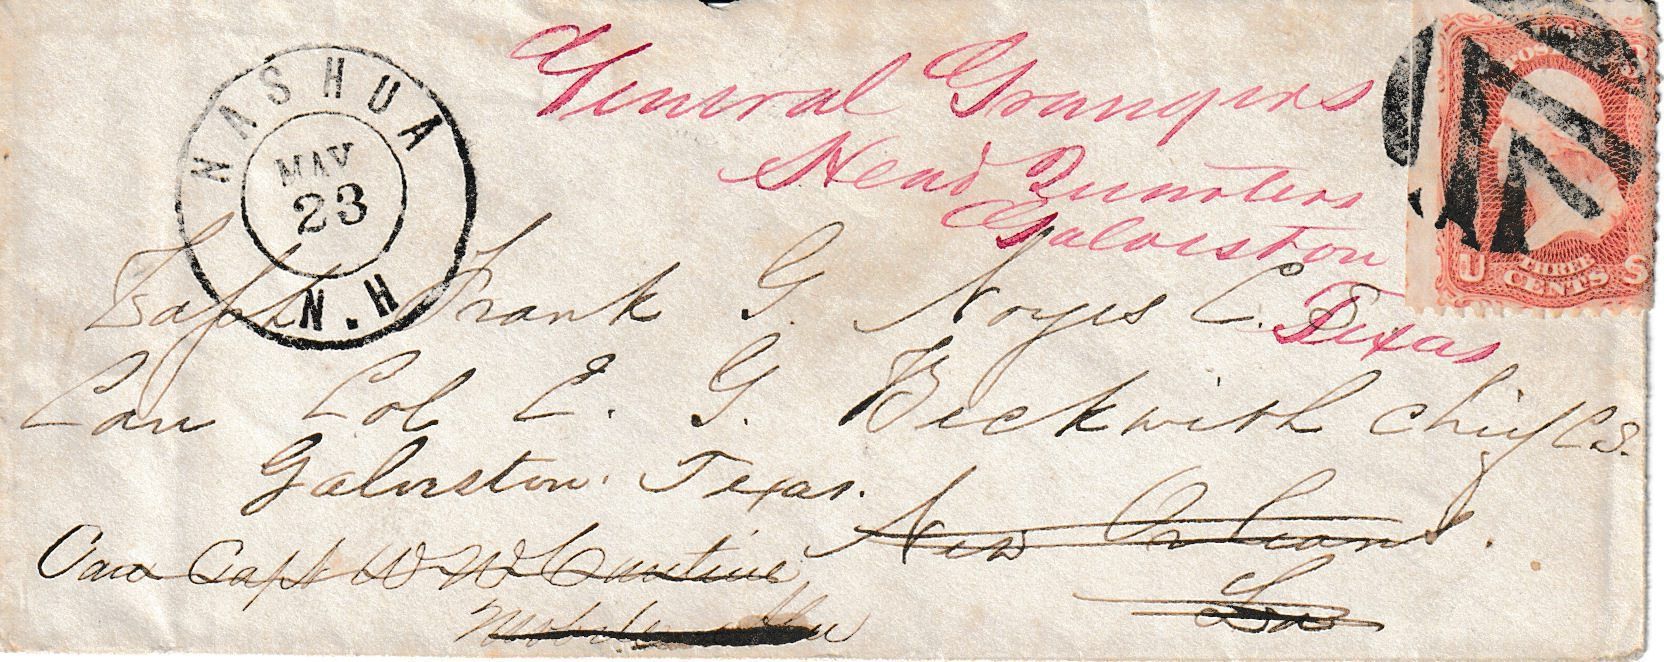 NASHUA
MAY
23
N.H
General Grangers
Head Quarters
Galveston
Texas
U.S. POSTAGE
U S
THREE
CENTS
Capt Frank G. Noyes C. S.
Care Col E. G. Beckwith Chief C.S.
Galveston. Texas.
New Orleans.
La
Care Capt W W
Mobile Ala